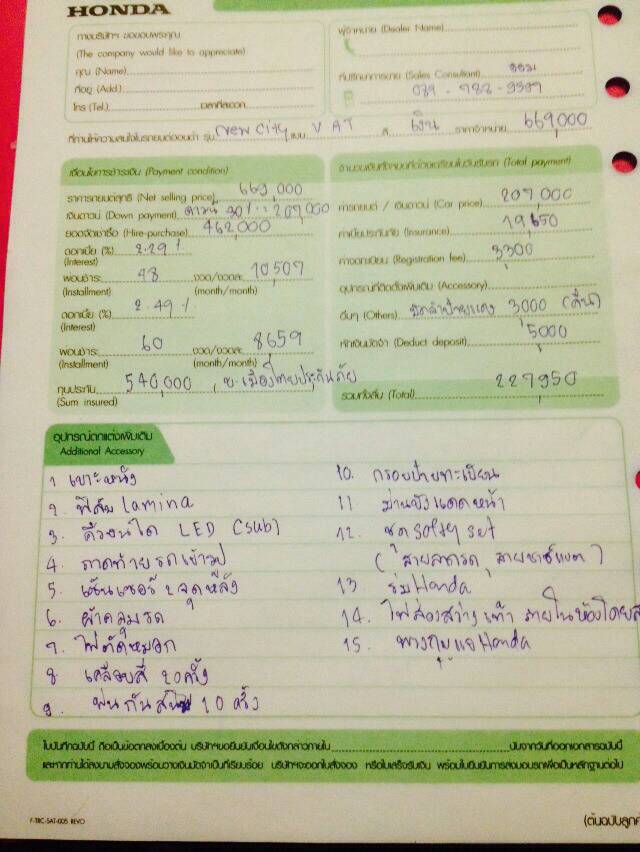 HONDA
ทางบริษัทฯ ขอขอบพระคุณ
(The company would like to appreciate)
คุณ (Name)
ที่อยู่ (Add.)
โทร (Tel.) เวลาที่สะดวก
ผู้จำหน่าย (Dealer Name)
ที่ปรึกษาการขาย (Sales Consultant)
ที่ท่านให้ความสนใจในรถยนต์ฮอนด้า รุ่น New City แบบ V AT สี เงิน ราคาจำหน่าย 669,000
เงื่อนไขการชำระเงิน (Payment condition)
ราคารถยนต์สุทธิ (Net selling price) 669,000
เงินดาวน์ (Down payment) ดาวน์ 30% = 207,000
ยอดจัดเช่าซื้อ (Hire-purchase) 462,000
ดอกเบี้ย (%) 2.29%
(Interest)
ผ่อนชำระ 48 งวด/งวดละ 10,507
(Installment) (month/month)
ดอกเบี้ย (%) 2.49%
(Interest)
ผ่อนชำระ 60 งวด/งวดละ 8659
(Installment) (month/month)
ทุนประกัน 540,000 บ.เมืองไทยประกันภัย
(Sum insured)
จำนวนเงินทั้งหมดที่ต้องเตรียมในวันรับรถ (Total payment)
ค่ารถยนต์ / เงินดาวน์ (Car price) 207,000
ค่าเบี้ยประกันภัย (Insurance) 19,650
ค่าจดทะเบียน (Registration fee) 3,300
อุปกรณ์ที่ติดตั้งเพิ่มเติม (Accessory)
อื่นๆ (Others) มัดจำป้ายแดง 3,000 (คืน)
หักเงินมัดจำ (Deduct deposit) 5,000
รวมทั้งสิ้น (Total) 227,950
อุปกรณ์ตกแต่งเพิ่มเติม
Additional Accessory
1 เบาะหนัง
2. ฟิล์ม Lamina
3. คิ้วบันได LED (SUB)
4. ถาดท้ายรถเข้ารูป
5. เซ็นเซอร์ 2 จุดหลัง
6. ผ้าคลุมรถ
7. ไฟตัดหมอก
8. เคลือบสี 20 ครั้ง
9. พ่นกันสนิม 10 ครั้ง
10. กรอบป้ายทะเบียน
11 ม่านบังแดดหน้า
12. ชุด Safty set
(สายลากรถ, สายชาร์จแบต)
13 ร่ม Honda
14. ไฟส่องสว่างเท้า ภายในห้องโดยส
15. พวงกุญแจ Honda
ใบบันทึกฉบับนี้ ถือเป็นข้อตกลงเบื้องต้น บริษัทฯขอยืนยันเงื่อนไขดังกล่าวภายใน นับจากวันที่ออกเอกสารฉบับนี้
และหากท่านได้ลงนามสั่งจองพร้อมวางเงินมัดจำเป็นที่เรียบร้อย บริษัทฯจะออกใบสั่งจอง หรือใบเสร็จรับเงิน พร้อมใบยืนยันการส่งมอบรถเพื่อเป็นหลักฐานต่อไป
F-TRC-SAT-005 REV.0
(ต้นฉบับลูกค้